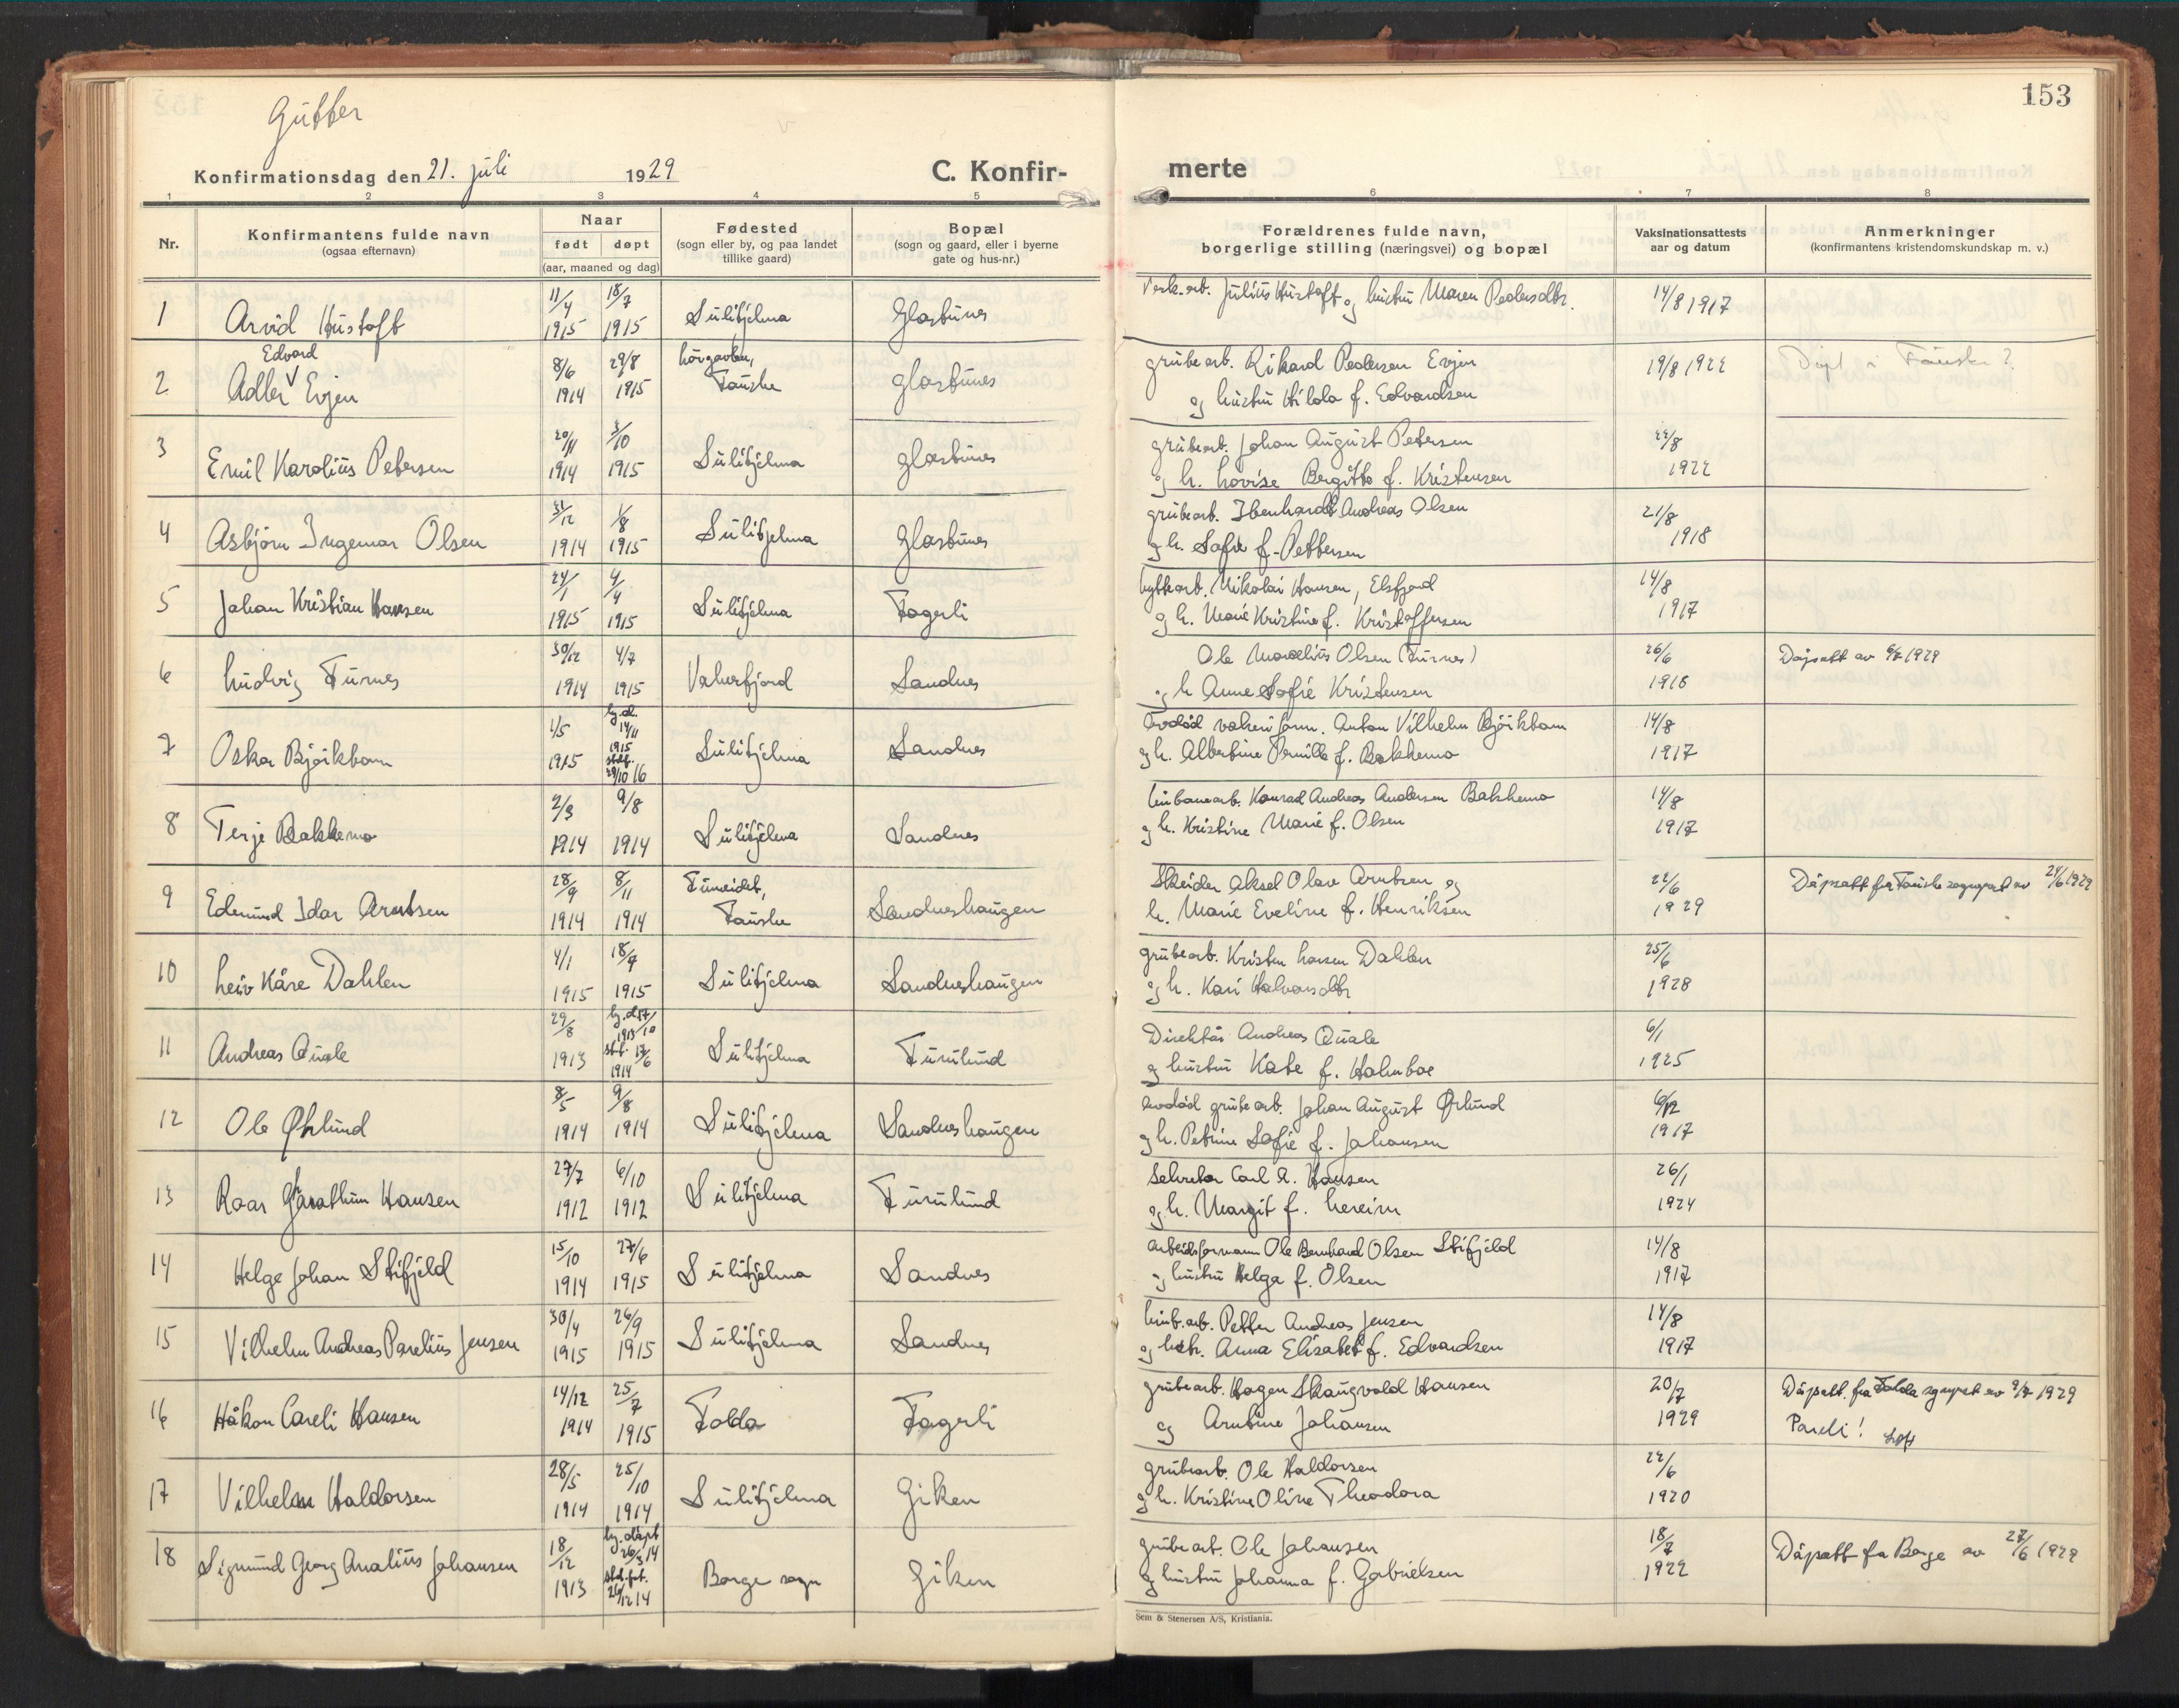 Gutter
153
Konfirmationsdag den 21. juli 1929
C. Konfir-
merte
1 2 3 4 5 6 7 8
Nr.
Konfirmantens fulde navn
(ogsaa efternavn)
Naar
født døpt
(aar, maaned og dag)
Fødested
(sogn eller by, og paa landet
tillike gaard)
Bopæl
(sogn og gaard, eller i byerne
gate og hus-nr.)
Forældrenes fulde navn,
borgerlige stilling (næringsvei) og bopæl
Vaksinationsattests
aar og datum
Anmerkninger
(konfirmantens kristendomskundskap m. v.)
1 Arvid Hustoft 11/4 1915 18/7 1915 Sulitjelma Glastunes
Verk.arb. Julius Hustoft og hustru Maren Pedersdtr. 14/8 1917
2 Adler Edvard Evjen 8/6 1914 29/8 1915 Fauske Glastunes
grubearb. Rikard Pedersen Evjen
og hustru Hilda f. Edvardsen 19/8 1922 Døpt i Fauske?
3 Emil Karolius Petersen 20/11 1914 3/10 1915 Sulitjelma Glastunes
grubearb. Johan August Petersen
og h. Lovise Bergitte f. Kristensen 22/8 1922
4 Asbjørn Ingemar Olsen 31/12 1914 1/8 1915 Sulitjelma Glastunes
grubearb. Ibenhardt Andreas Olsen
og h. Sofie f. Pettersen 21/8 1918
5 Johan Kristian Hansen 24/1 1915 4/4 1915 Sulitjelma Fagerli
hyttearb. Nikolai Hansen, Elsfjord
og h. Marie Kristine f. Kristoffersen 14/8 1917
6 Ludvig Furnes 30/12 1914 4/7 1915 Valnesfjord Sandnes
Ole Marselius Olsen (Furnes)
og h. Anne Sofie Kristensen 26/6 1918 Dåpsatt av 6/7 1929
7 Oskar Bjørkbom 1/5 1915 hj.d. 14/11 1915 stdf. 29/10 16 Sulitjelma Sandnes
avdød Anton Vilhelm Bjørkbom
og h. Albertine Pernille f. Bakkemo 14/8 1917
8 Terje Bakkemo 2/3 1914 9/8 1914 Sulitjelma Sandnes
linbanearb. Konrad Andreas Andersen Bakkemo
og h. Kristine Marie f. Olsen 14/8 1917
9 Edmund Idar Arntsen 28/9 1914 8/11 1914 Finneidet, Fauske Sandneshaugen
Skeider Aksel Olav Arntsen og
h. Marie Eveline f. Henriksen 22/6 1929 Dåpsatt fra Fauske sogneprest av 24/6 1929
10 Leiv Kåre Dahlen 4/1 1915 18/9 1915 Sulitjelma Sandneshaugen
grubearb. Kristen Larsen Dahlen
og h. Kari Halvorsdtr 25/6 1928
11 Andreas Quale 29/8 1913 hj.d. 17/10 1913 stf. 17/6 1914 Sulitjelma Furulund
Direktør Andreas Quale
og hustru Kate f. Holmboe 6/1 1925
12 Ole Ørlund 8/5 1914 9/8 1914 Sulitjelma Sandneshaugen
avdød grubearb. Johan August Ørlund
og h. Petrine Sofie f. Johansen 6/12 1917
13 Roar Hansen 27/7 1912 6/10 1912 Sulitjelma Furulund
Sekretær Carl A. Hansen
og h. Margit f. 26/1 1924
14 Helge Johan Stifjeld 15/10 1914 27/6 1915 Sulitjelma Sandnes
arbeidsformann Ole Bernhard Olsen Stifjeld
og hustru Helga f. Olsen 14/8 1917
15 Vilhelm Andreas Parelius Jensen 30/4 1915 26/9 1915 Sulitjelma Sandnes
linb.arb. Petter Andreas Jensen
og hustr. Anna Elisabet f. Edvardsen 14/8 1917
16 Håkon Careli Hansen 14/12 1914 25/7 1915 Folda Fagerli
grubearb. Hagen Skaugvold Hansen
og Arntine Johansen 20/7 1929 Dåpsatt. fra Folda sogneprest av 9/7 1929
Pareli!
17 Vilhelm Haldorsen 28/5 1914 25/10 1914 Sulitjelma Giken
grubearb. Ole Haldorsen
og h. Kristine Oline Theodora 22/6 1920
18 Sigmund Georg Analius Johansen 18/12 1913 hj. døpt 26/3 14 std.fet. 26/12 14 Borge sogn Giken
grubearb. Ole Johansen
og hustru Johanna f. Gabrielsen 18/7 1922 Dåpsatt fra Borge av 27/6 1929
Sem & Stenersen A/S, Kristiania.